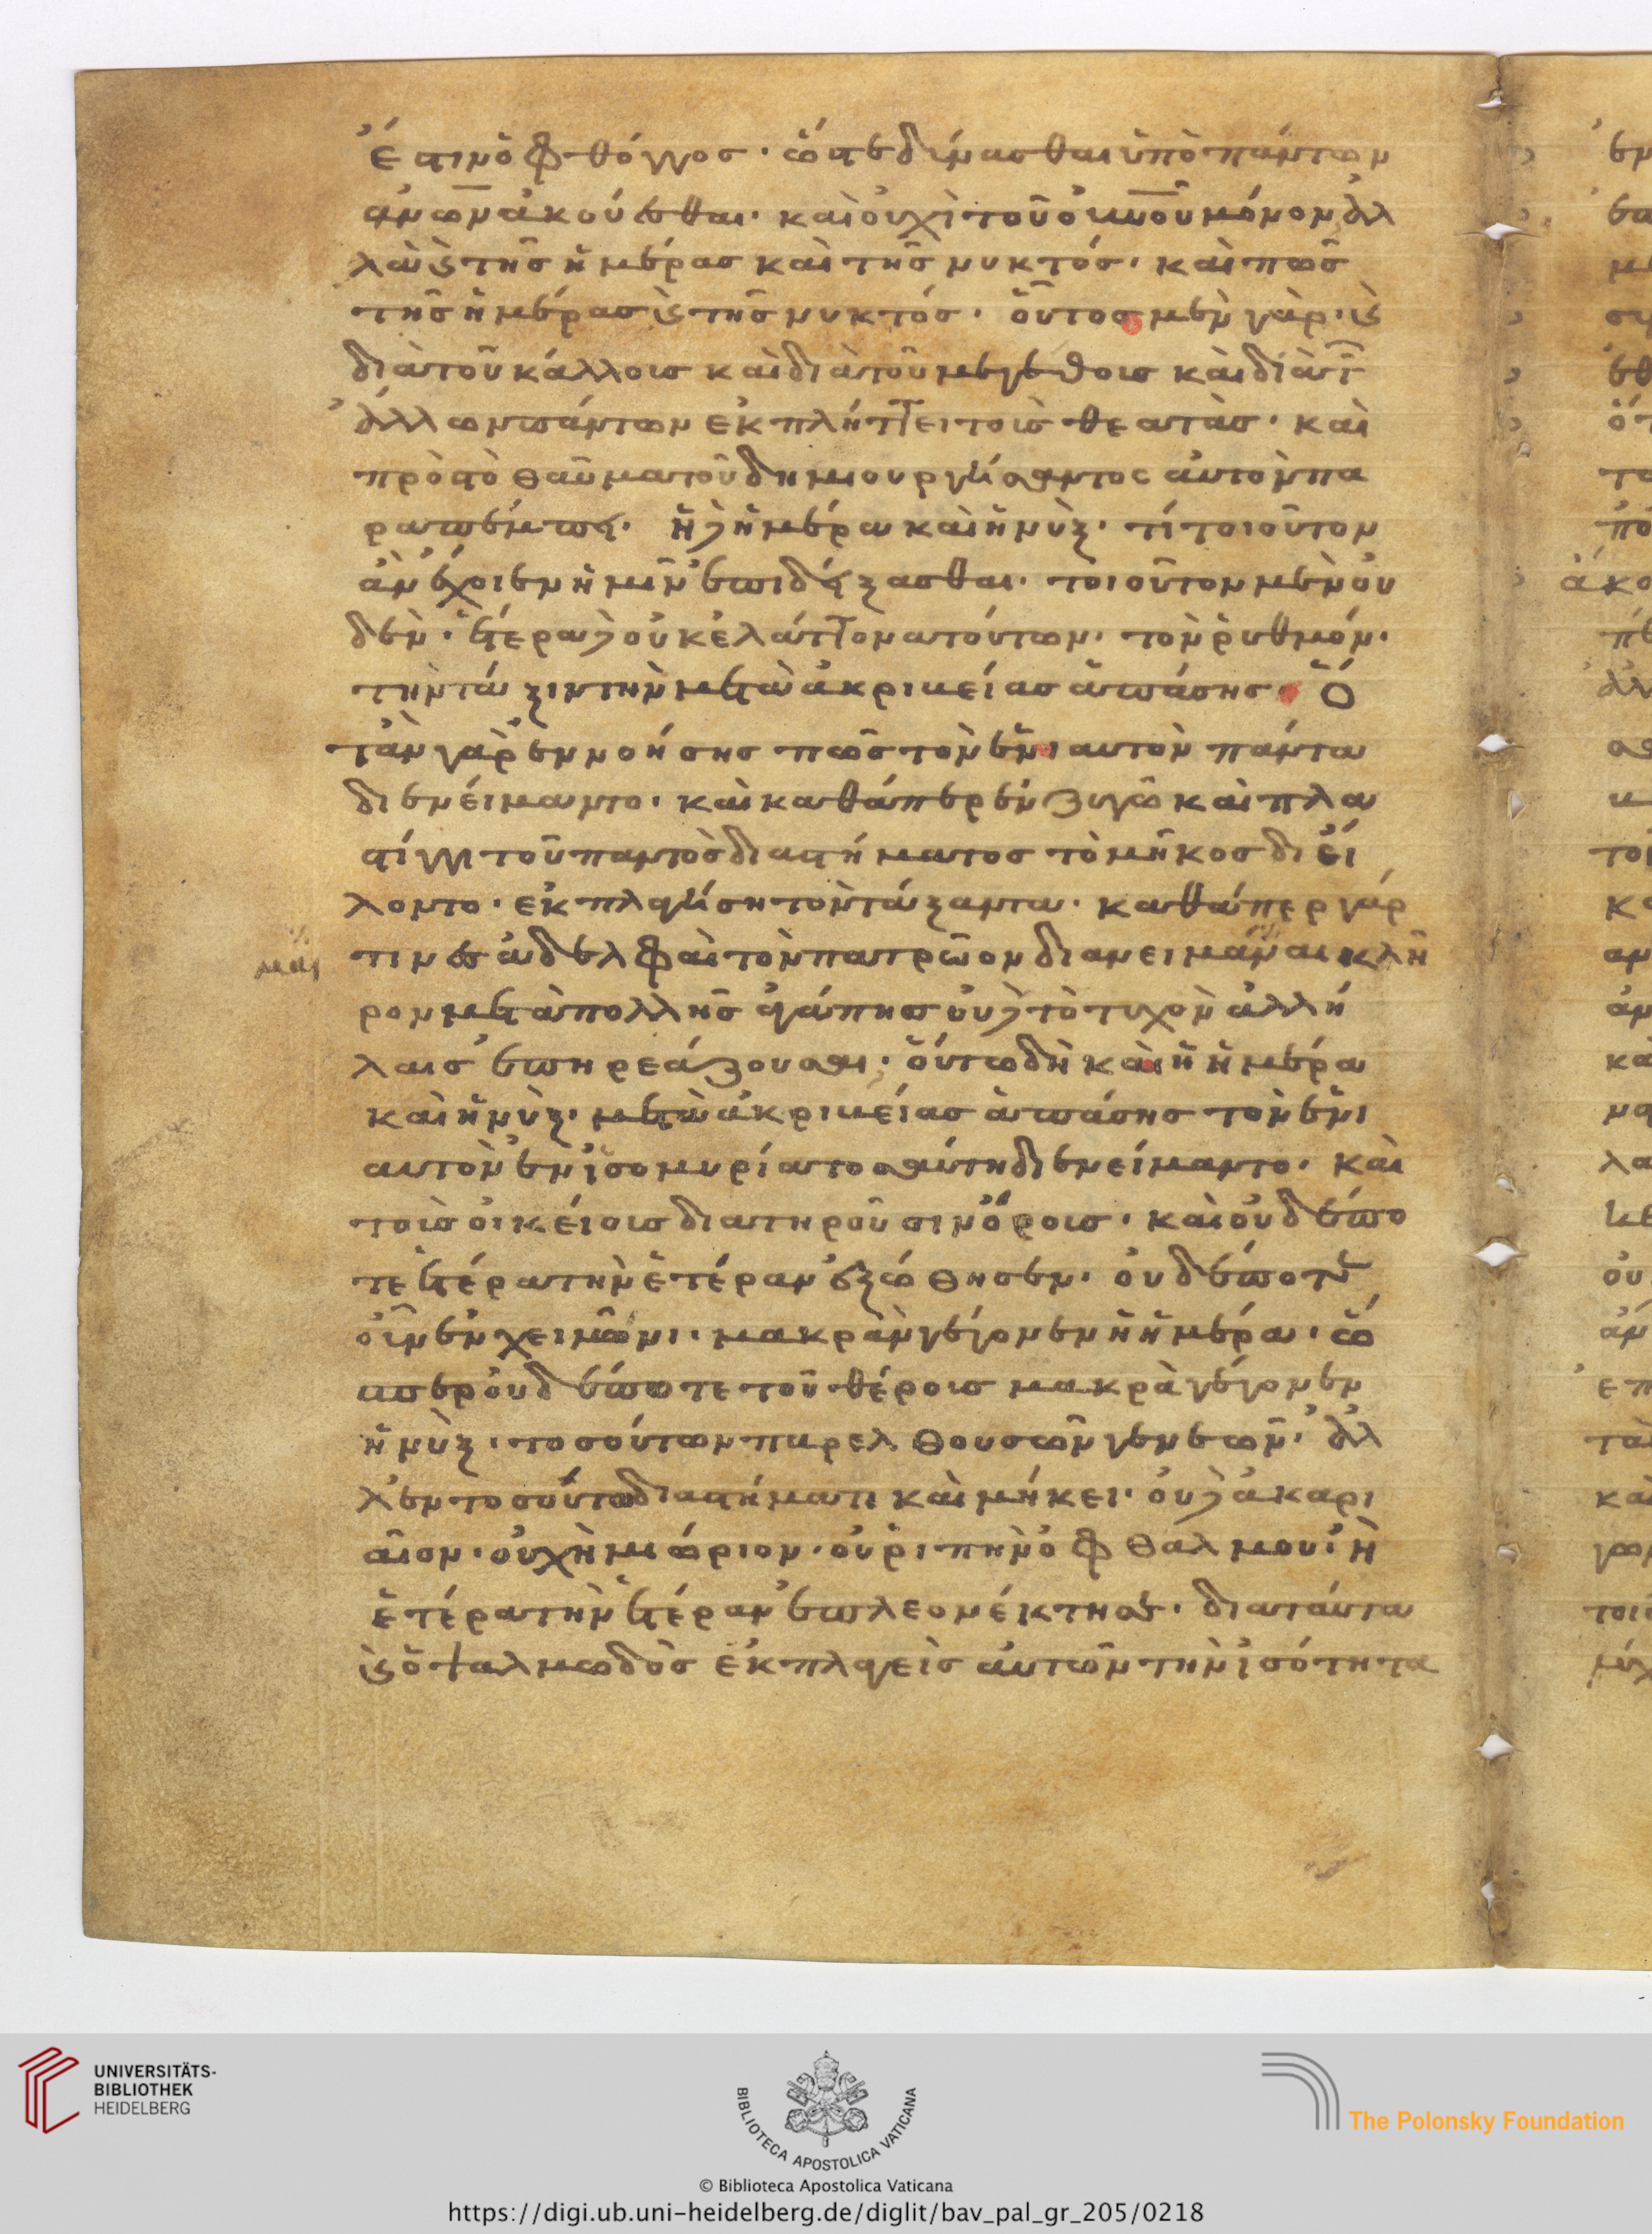 ἐστιν ὁ φθόγγος· ὥστε δύνασθαι ὑπὸ πάντων
ἀνων ἀκούεσθαι· καὶ οὐχὶ τοῦ οὐνου μόνον ἀλ
λὰ καὶ τῆς ἡμέρας καὶ τῆς νυκτός· καὶ πῶς
τῆς ἡμέρας καὶ τῆς νυκτός· οὗτος μὲν γὰρ· καὶ
διὰ τοῦ κάλλους καὶ διὰ τοῦ μεγέθους καὶ διὰ τ
ἄλλων πάντων ἐκπλήττει τοὺς θεατάς· καὶ
πρὸς τὸ θαῦμα τοῦ δημιουργήσαντος αὐτὸν πα
ραπέμπει· ἡ δὲ ἡμέρα καὶ ἡ νὺξ· τί τοιοῦτον
ἂν ἔχοιεν ἡμῖν ἐπιδείξασθαι· τοιοῦτον μὲν οὐ
δέν· ἕτερα δὲ οὐκ ἐλάττονα τούτων· τὸν ῥυθμόν·
τὴν τάξιν τὴν μετὰ ἀκριβείας ἁπάσης· Ὅ
ταν γὰρ ἐννοήσης πῶς τὸν ἐνιαυτὸν πάντα
διενείμαντο· καὶ καθάπερ ἐν ζυγῶ καὶ πλα
στίγγι τοῦ παντὸς διαστήματος τὸ μῆκος διεί
λοντο· ἐκπλαγήση τὸν τάξαντα· καθάπερ γάρ
τινες ἀδελφαὶ τὸν πατρῶον διανειμάμεναι κλῆ
ρον μετὰ πολλῆς ἀγάπης οὐδὲ τὸ τυχὸν ἀλλή
λαις ἐπηρεάζουσαι· οὕτω δὴ καὶ ἡ ἡμέρα
καὶ ἡ νὺξ· μετὰ ἀκριβείας ἁπάσης τὸν ἐνι
αυτὸν ἐν ἰσομυρία τοσαύτη διενείμαντο· καὶ
τοὺς οἰκείους διατηροῦσιν ὅρους· καὶ οὐδέπο
τε ἑτέρα τὴν ἑτέραν ἐξώθησεν· οὐδέποτε
οὖν ἐν χειμῶνι· μακρὰν γέγονεν ἡ ἡμέρα· ὥ
σπερ οὐδέποτε τοῦ θέρους μακρὰ γέγονεν
ἡ νὺξ· τοσούτων παρελθουσῶν γενεῶν· ἀλ
λ' ἐν τοσούτω διαστήματι καὶ μήκει· οὐδὲ ἀκαρι
αῖον· οὐχ ἡμιώριον· οὐ ῥιπὴν ὀφθαλμοῦ· ἡ
ἑτέρα τὴν ἑτέραν ἐπλεονέκτησε· διὰ ταῦτα
καὶ ὁ ψαλμωδὸς ἐκπλαγεὶς αὐτῶν τὴν ἰσότητα
UNIVERSITÄTS-
BIBLIOTHEK
HEIDELBERG
BIBLIOTECA APOSTOLICA VATICANA
The Polonsky Foundation
© Biblioteca Apostolica Vaticana
https://digi.ub.uni-heidelberg.de/diglit/bav_pal_gr_205/0218